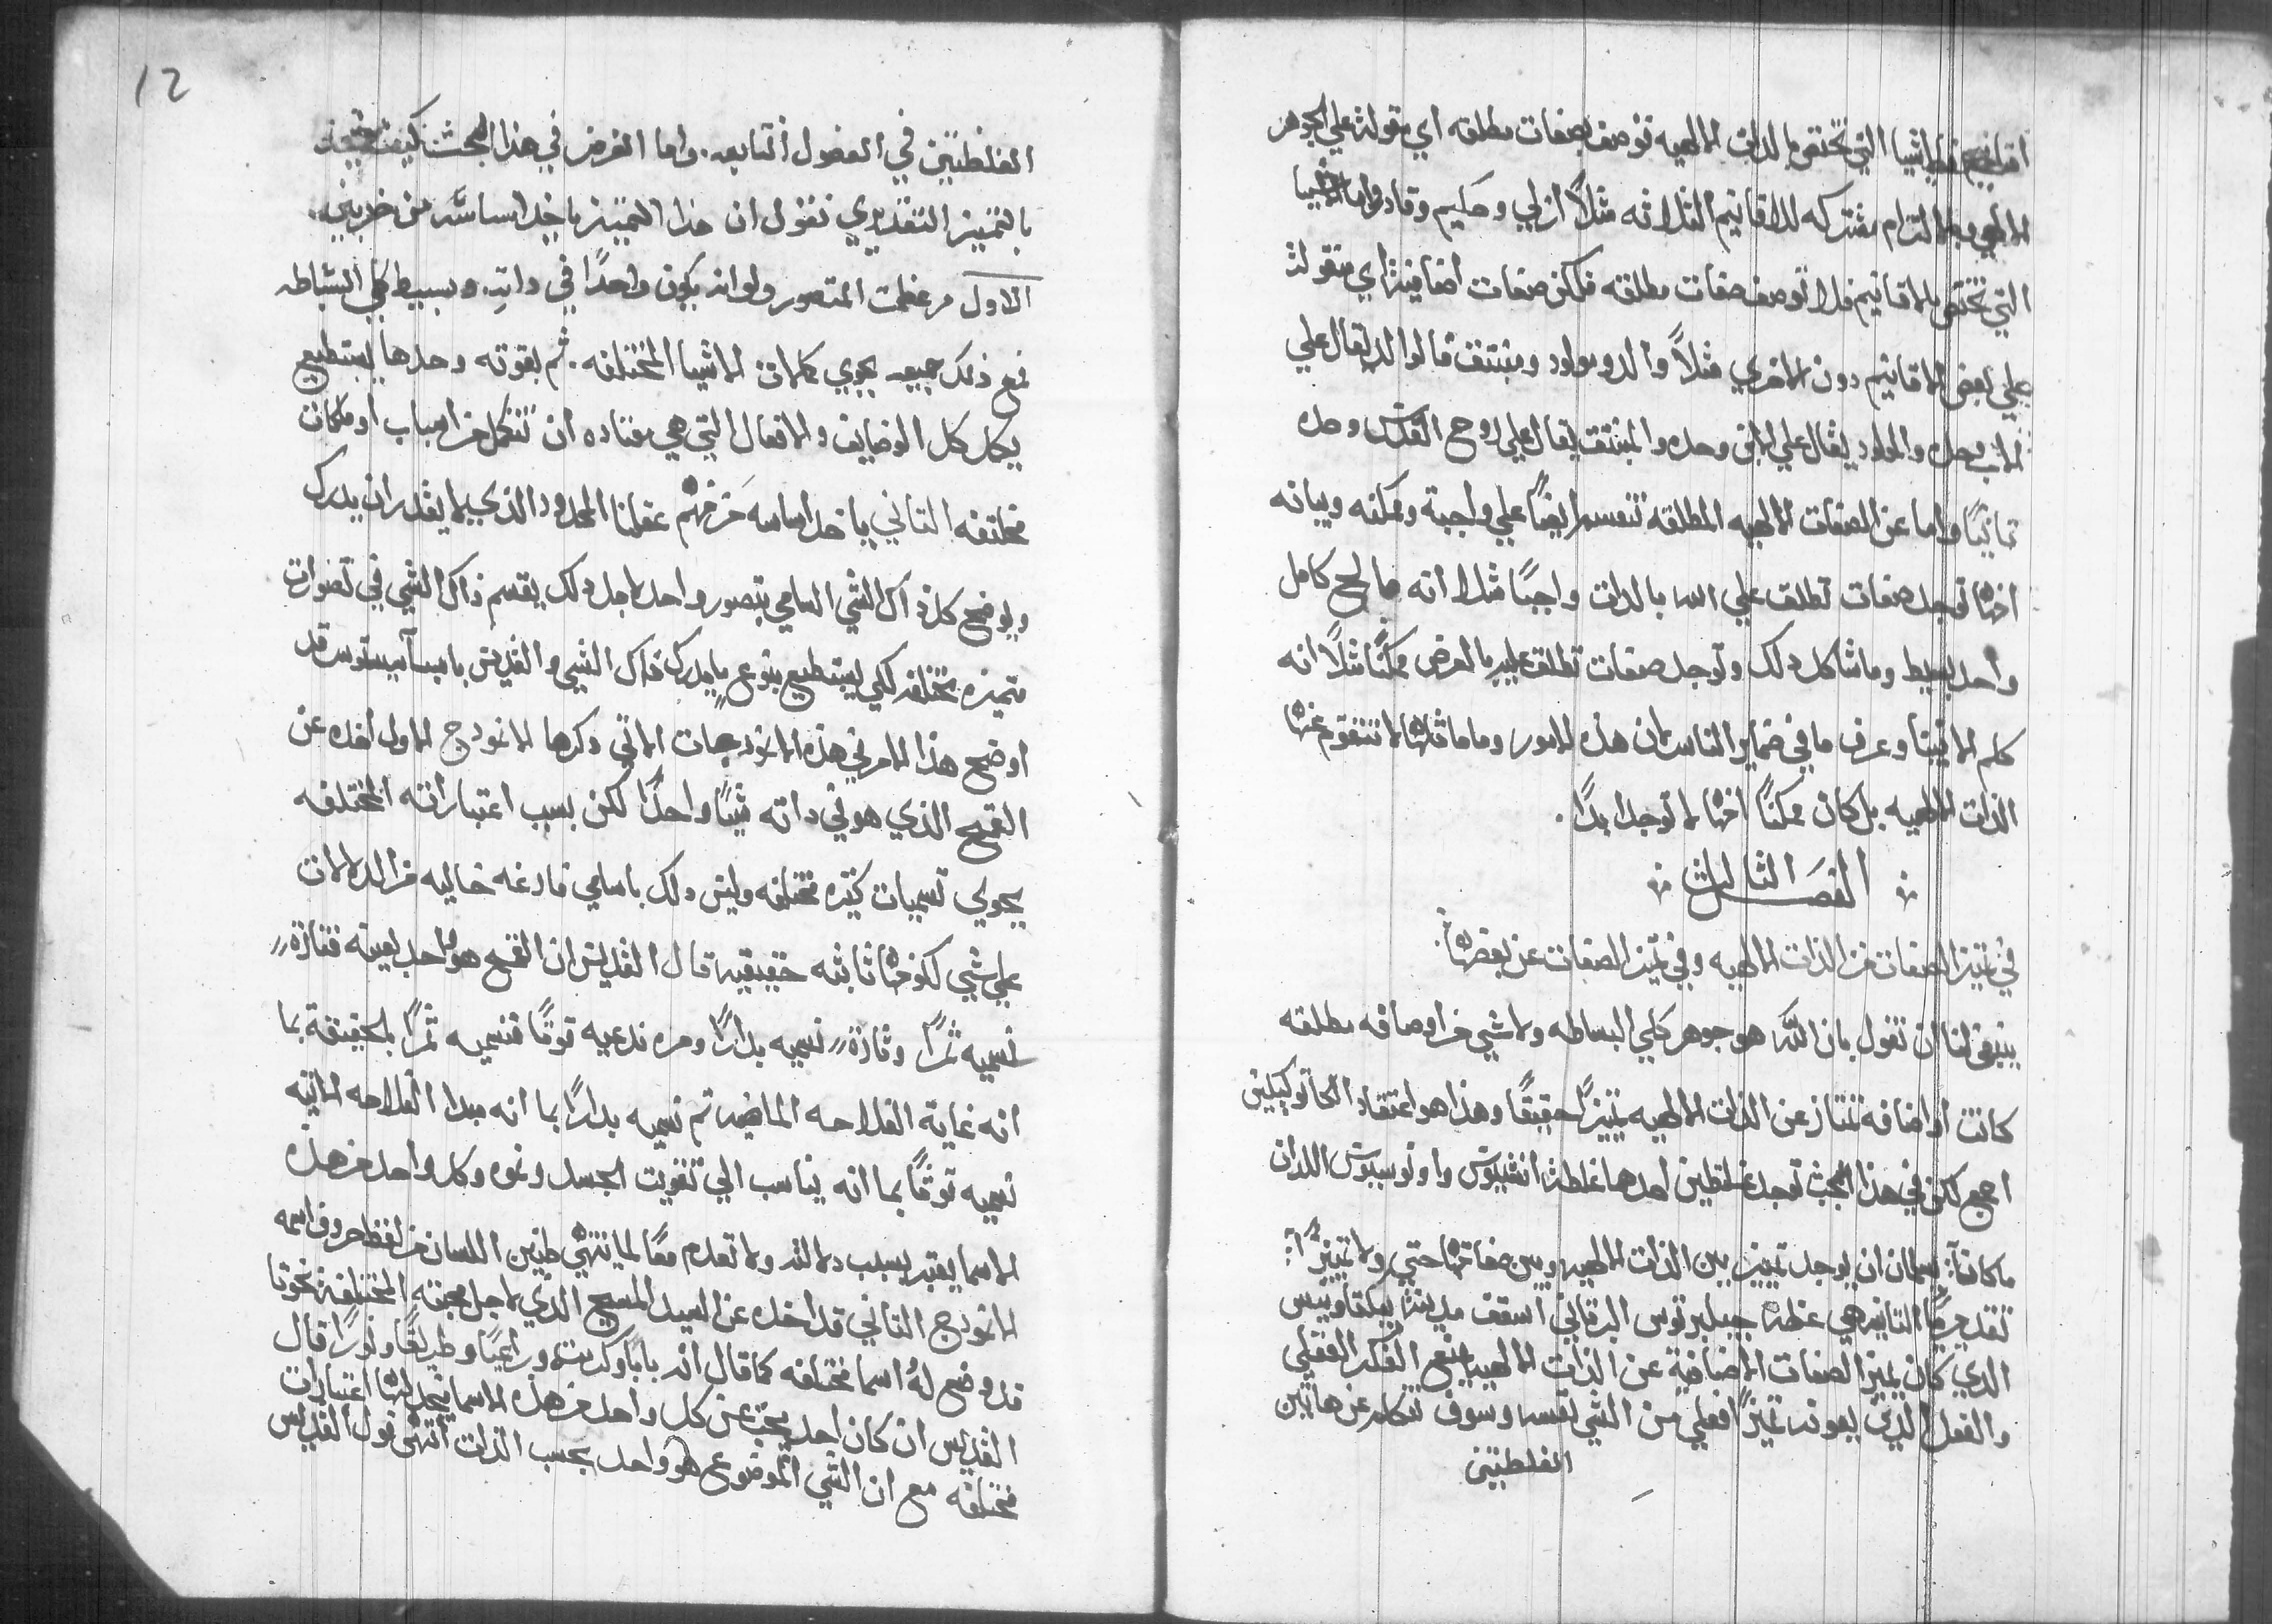 اقانيم فالاشيا التي تختص بالذات الالهيه توصف بصفات مطلقه اي مقولة علي الجوهر
الالهي وبالالتزام مشتركه للاقانيم الثلاثه مثلاً ازلي وحكيم وقادر واما الاشيا
التي تختص بالاقانيم فلا توصف صفات مطلقه فلكن صفات اضافية اي مقولة
علي بعض الاقانيم دون الاخري مثلاً والد ومولود ومنبثق فالوالد يقال علي
الاب وحده والمولود يقال علي الابن وحده والمنبثق يقال علي الروح القدس وحده
ثانيًا واما عن الصفات الالهيه المطلقه تنقسم ايضًا علي واجبة وممكنه وبيانه
انها توجد صفات تطلق علي الله بالذات واجبًا مثلا انه صالح كامل
واحد بسيط وما شاكل ذلك وتوجد صفات تطلق عليه بالعرض ممكنًا مثلاً انه
كلم الانبيا وعرف ما في ضماير الناس لان هذه الامور وما ماثلها لا تتقوم عنها
الذات الالهيه بل كان ممكنًا انها لا توجد ابدًا.
الفصل الثالث
في تمييز الصفات من الذات الالهيه وفي تميز الصفات عن بعضها
ينبغي لنا ان نقول بان الله هو جوهر كلي البساطه ولا شي من اوصافه مطلقه
كانت او اضافه تمتاز عن الذات الالهيه تميزًا حقيقًا وهذا هو اعتقاد الكاتوليكيين
اجمع لكن في هذا البحث توجد غلطتين احدها غلطة انقيوس واونوميوس اللذان
ما كانا يسلمان ان يوجد تمييز بين الذات الالهيه وبين صفاتها حتي ولا تمييزًا
تقديريًا الثانيه هي غلطة جيلبرتوس البرتاني اسقف مدينة بيكتاويس
الذي كان يميز الصفات الاضافية عن الذات الالهيه بنوع الفكر العقلي
والفعل الذي يعوند تميزًا فعلي من الشي نفسه وسوف نتكلم عن هاتين
الغلطتين
12
الغلطتين في الفصول التابعه. واما الغرض في هذا البحث كيف
بالتمييز التقديري نقول ان هذا التمييز ياخذ اساسه من ضربين.
الاول من عظمت المتصور ولو انه يكون واحدًا في ذاته. وبسيط كلي البساطه
فمع ذلك جميعه يحوي كمالات الاشيا المختلفه. ثم بقوته وحدها يستطيع
يكمل كل الوضايف والافعال التي هي معتاده ان تتكمل من اسباب او ملكات
مختلفه الثاني ياخذ اساسه من فهم عقلنا المحدود الذي لا يقدر ان يدرك
ويوضح كل ذاك الشي السامي بتصور واحد لاجل ذلك يقسم ذاك الشي في تصورات
متميزه مختلفه لكي يستطيع بنوع ما يدرك ذاك الشي والقديس باسيليوس قد
اوضح هذا الامر في هذه الانودجات الاتي ذكرها الانودج الاول اخذه عن
القمح الذي هو في ذاته شيًا واحدًا لكن بسبب اعتباراته المختلفه
يحوي تسميات كثيره مختلفه وليس ذلك باسامي فارغه خاليه من الدلالات
علي شي لكونها ثابته حقيقيه قال القديس ان القمح هو واحد بعينه فتارة
نسميه ثمرًا وتارة نسميه بدارًا ومره ندعيه قوتًا فنسميه ثمرًا بالحقيقة بما
انه غاية الفلاحه الماضيه ثم نسميه بدارًا بما انه مبدا الفلاحه الاتيه
نسميه قوتًا بما انه يناسب الي تقويت الجسد ونموه وكل واحد من هذه
الاسما يعتبر بسبب دلالته ولا تعدم معًا لما ينتهي طنين اللسان من لفظ حروف اسمه
الانودج الثاني قد اخذه عن السيد المسيح الذي لاجل محبته المختلفة نحونا
قد وضع له اسما مختلفه كما قال انه بابًا وكرمة وراعيًا وطريقًا ونورًا قال
القديس ان كان احد يبحث عن كل واحد من هذه الاسما يجد لها اعتبارات
مختلفه مع ان الشي الموضوع هو واحد بحسب الذات انتهي قول القديس